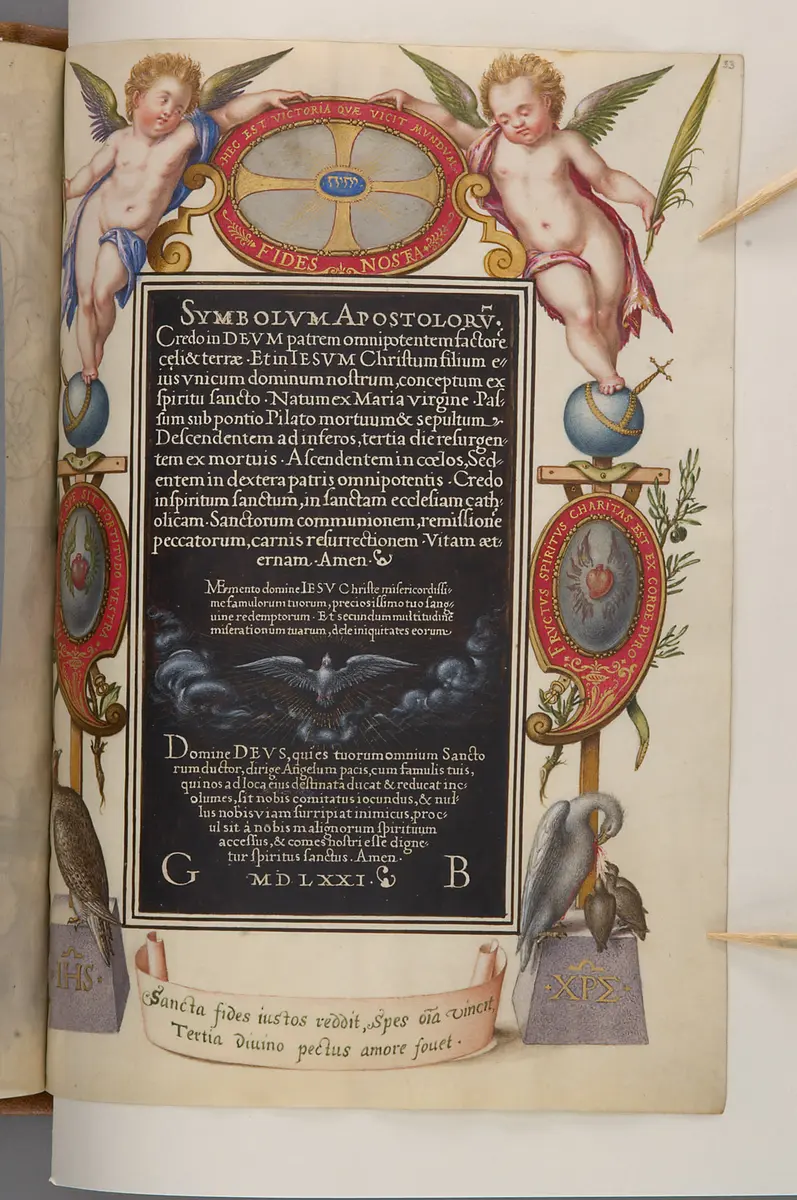 33
HEC EST VICTORIA QVÆ VICIT MVNDVM
יהוה
FIDES NOSTA
SYMBOLVM APOSTOLORṼ.
Credo in DEVM patrem omnipotentem factorē
cęli & terræ · Et in IESVM Christum filium e⸗
ius vnicum dominum nostrum, conceptum ex
spiritu sancto · Natum ex Maria virgine · Pas⸗
sum sub pontio Pilato mortuum & sepultum
Descendentem ad inferos, tertia die resurgen⸗
tem ex mortuis · Ascendentem in cœlos, Sed⸗
entem in dextera patris omnipotentis · Credo
in spiritum sanctum, in sanctam ecclesiam cath⸗
olicam · Sanctorum communionem, remissionē
peccatorum, carnis resurrectionem · Vitam æt⸗
ernam · Amen ·
Memento domine IESV Christe misericordissi⸗
me famulorum tuorum, preciosissimo tuo sang⸗
uine redemptorum · Et secundum multitudinē
miserationum tuarum, dele iniquitates eorum
Domine DEVS, qui es tuorum omnium Sancto
rum ductor, dirige Angelum pacis, cum famulis tuis,
qui nos ad loca eius destinata ducat & reducat inc⸗
olumes, sit nobis comitatus iocundus, & nul⸗
lus nobis viam surripiat inimicus, proc⸗
ul sit à nobis malignorum spirituum
accessus, & comes nostri esse digne⸗
tur spiritus sanctus · Amen ·
G MDLXXI · B
SPE SIT FORTITVDO VESTRA
FRVCTVS SPIRITVS CHARITAS EST EX CORDE PVRO
IHS ·
· XPΣ ·
Sancta fides iustos reddit, Spes oīa vincit,
Tertia diuino pectus amore fouet ·